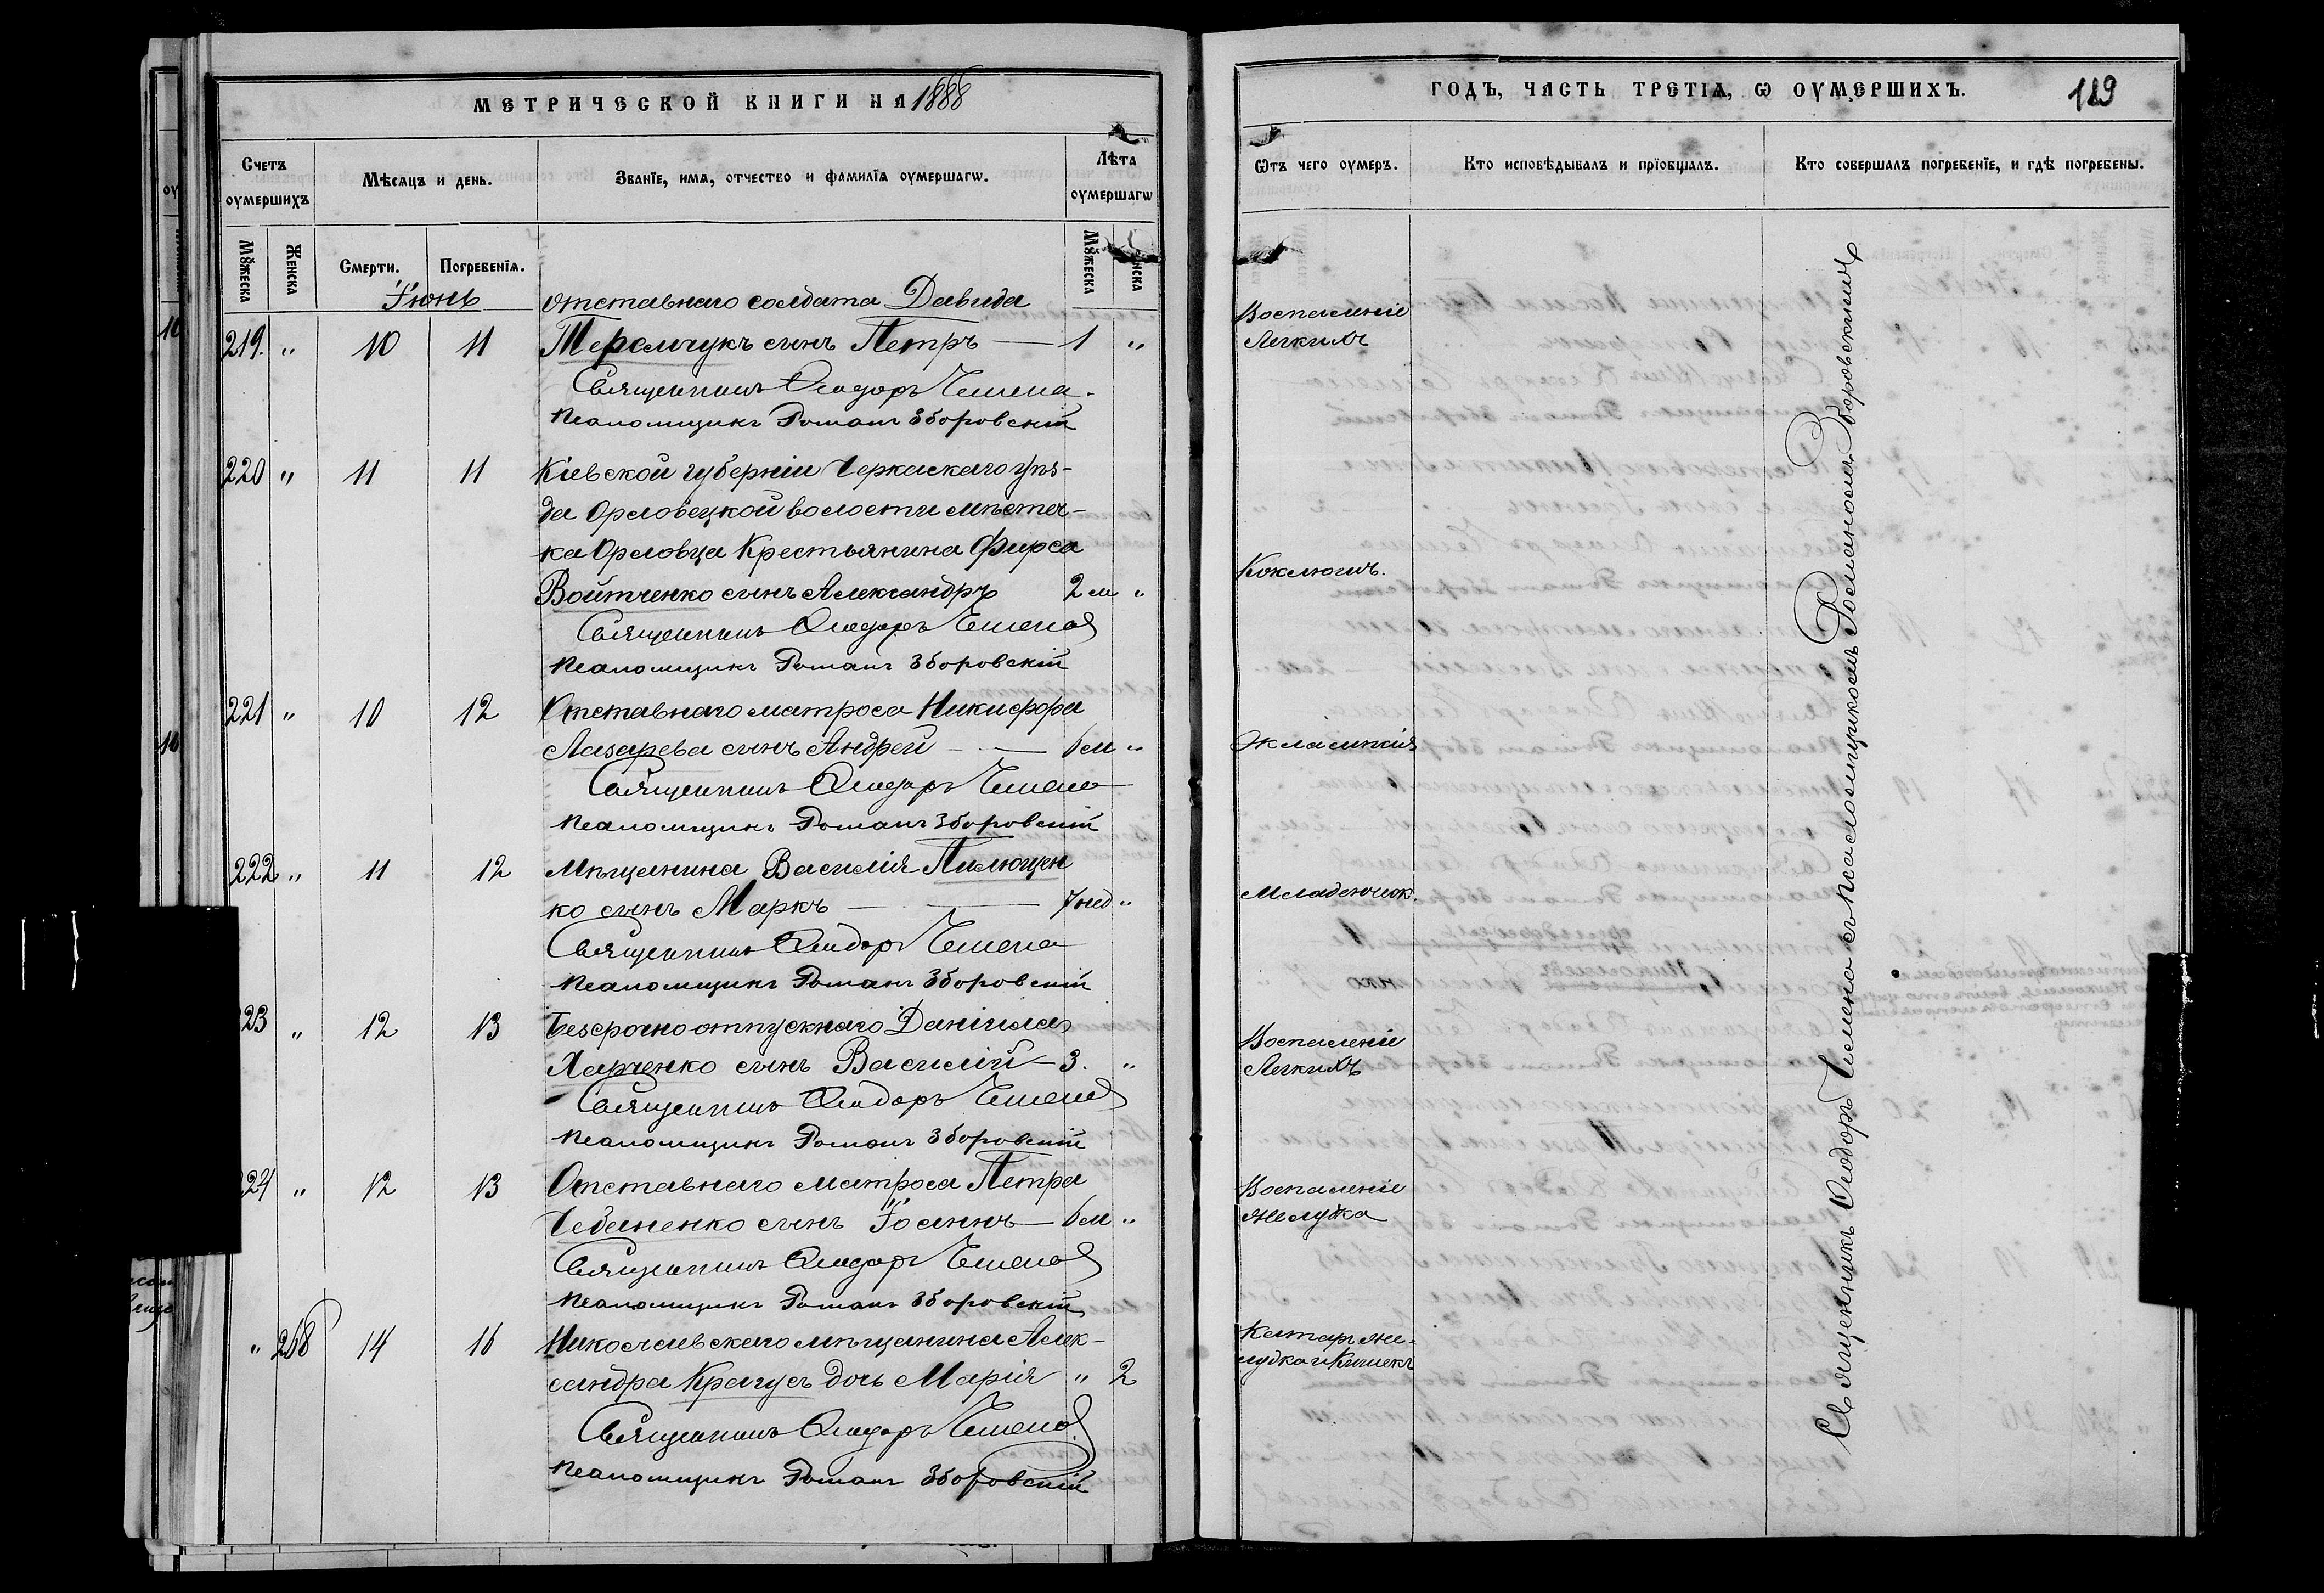 МЕТРИЧЕСКОЙ КНИГИ НА 1888
Счетъ оумершихъ
Мѣсяцъ и день.
Званїе, имя, отчество и фамилїа оумершагѡ.
Лѣта оумершагѡ
Мꙋжеска
Женска
Смерти.
Погребенїя.
Мꙋжеска
Іюнь
отставнаго солдата Давида
219. " 10 11 сынъ Петръ — 1 "
Священникъ Ѳеодоръ Чемена.
Псаломщикъ Романъ Зборовскій
220 " 11 11 Кіевской губерніи Черкаскаго уѣз-
да Орловецкой волости мѣстеч-
ка Орловца Крестьянина Фирса
Войтченко сынъ Александръ 2 м "
Священникъ Ѳеодоръ Чемена
Псаломщикъ Романъ Зборовскій
221 " 10 12 Отставнаго матроса Никифора
Лазарева сынъ Андрей — 6 м "
Священникъ Ѳеодоръ Чемена
Псаломщикъ Романъ Зборовскій
222 " 11 12 Мѣщанина Василія Пилющен
ко сынъ Маркъ — 7 нед "
Священникъ Ѳеодоръ Чемена
Псаломщикъ Романъ Зборовскій
23 " 12 13 Безсрочно отпускнаго Даніила
Харченко сынъ Василій — 3. "
Священникъ Ѳеодоръ Чемена
Псаломщикъ Романъ Зборовскій
224 " 12 13 Отставнаго матроса Петра
Чебаненко сынъ Іоаннъ — 6 м "
Священникъ Ѳеодоръ Чемена
Псаломщикъ Романъ Зборовскій
" 268 14 16 Николаевскаго мѣщанина Алек-
сандра дочь Марія " 2
Священникъ Ѳеодоръ Чемена
Псаломщикъ Романъ Зборовскій
ГОДЪ, ЧАСТЬ ТРЕТІѦ, Ѡ ОУМЕРШИХЪ.
119
Ѿтъ чего оумеръ.
Кто исповѣдывалъ и прїобщалъ.
Кто совершалъ погребенїе, и гдѣ погребены.
Воспаленіе
Легкихъ
Коклюшъ.
Экламсія
Младенческ.
Воспаленіе
Легкихъ
Воспаленіе
желудка
Катаръ же-
лудка и Кишекъ
Священникъ Ѳеодоръ Чемена съ псаломщикомъ Романомъ Зборовскимъ